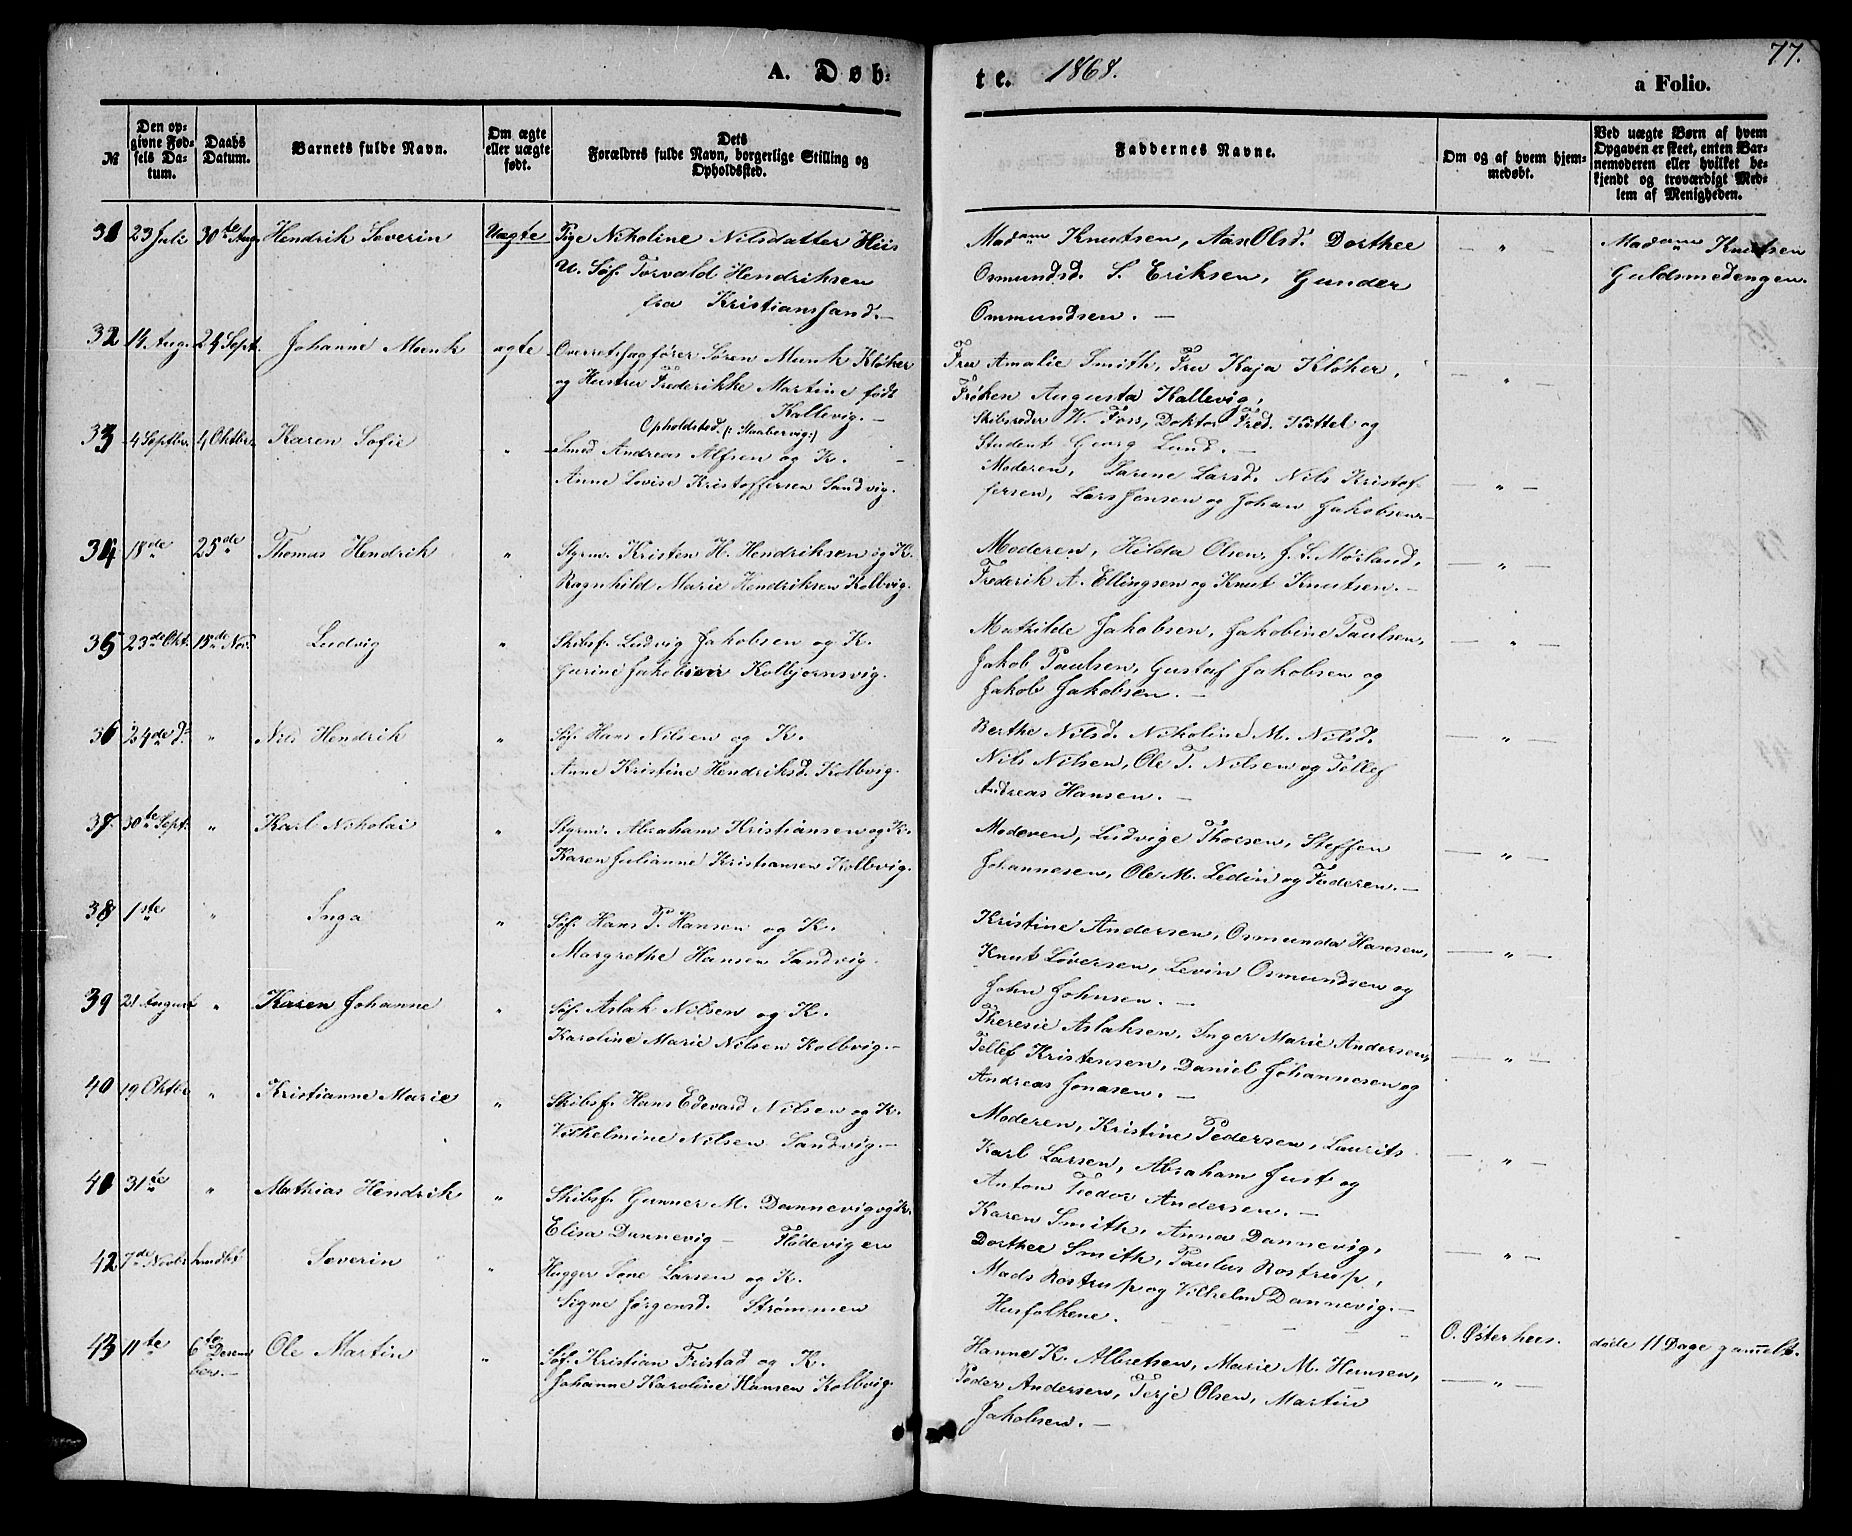 77.
A. Døb-
te. 1868.
a Folio.
№
Den op-
givne Fød-
sels Da-
tum.
Daabs
Datum.
Barnets fulde Navn.
Om ægte
eller uægte
født.
Dets
Forældres fulde Navn, borgerlige Stilling og
Opholdssted.
Faddernes Navne.
Om og af hvem hjem-
medøbt.
Ved uægte Børn af hvem
Opgaven er skeet, enten Bar-
nemoderen eller hvilket be-
kjendt og troværdigt Med-
lem af Menigheden.
31 23 Juli 30te Aug. Hendrik Severin Uægte Pige Nikoline Nilsdatter Hiis
U. Søf. Torvald Hendriksen
fra Kristianssand.—
Madam Knutsen, Aas Olsd. Dorthee
Osmundsd. S. Eriksen, Gunder
Ommundsen.—
— „ —
Madam Knutsen
Guldsmedengen.
32 14 Aug. 24 Sept. Johanne Munk ægte Overretssagfører Søren Munk Kløker
og Hustru Frederikke Martine født
Kallevig.—
Opholdsted (: Staabervig:)
Fru Amalie Smith, Fru Kaja Kløker,
Frøken Augusta Kallevig,
Skibsreder W. Foss, Doktor Fred. Kittel og
Student Georg Lund.—
— „ —
33 4 Septbr. 4 Oktbr. Karen Sofie „ Smed Andreas Alfsen og K.
Anne Lovise Kristoffersen Sandvig.
Moderen, Larine Larsd. Nils Kristof-
fersen, Lars Jensen og Johan Jakobsen—
— „ —
34 18de 25de Thomas Hendrik „ Styrm. Kristen H. Hendriksen og K.
Ragnhild Marie Hendriksen Kolbvig.
Moderen, Hilda Olsen, J. L. Mørland,
Frederik A. Ellingsen og Knut Knutsen.—
— „ —
35 23de Okt. 15de Nov. Ludvig „ Skibsf. Ludvig Jakobsen og K.
Gurine Jakobsen Kolbjornsvig.
Mathilde Jakobsen, Jakobine Paulsen,
Jakob Paulsen, Gustaf Jakobsen og
Jakob Jakobsen.—
— „ —
36 24de d. „ Nils Hendrik „ Søf. Hans Nilsen og K.
Anne Kristine Hendriksd. Kolbvig.
Berthe Nilsd. Nikoline M. Nilsd.
Nils Nilsen, Ole T. Nilsen og Tellef
Andreas Hansen.—
— „ —
37. 30te Sept. „ Karl Nikolai „ Styrm. Abraham Kristiansen og K.
Karen Julianne Kristiansen Kolbvig.
Moderen, Ludvige Thorsen, Steffen
Johannesen, Ole M. Ledin og Faderen.—
— „ —
38 1ste „ Inga „ Søf. Hans T. Hansen og K.
Margrethe Hansen Sandvig.
Kristine Andersen, Osmunda Hansen,
Knut Løversen, Levin Osmundsen og
John Johnsen.—
— „ —
39 21 August „ Karen Johanne „ Søf. Aslak Nilsen og K.
Karoline Marie Nilsen Kolbvig.—
Theresie Aslaksen, Inger Marie Andersen,
Tellef Kristensen, Daniel Johannesen og
Andreas Jonasen.—
— „ —
40 19 Oktbr „ Kristianne Marie „ Skibsf. Hans Edevard Nilsen og K.
Vilhelmine Nilsen Sandvig.—
Moderen, Kristine Pedersen, Laurits
Karl Larsen, Abraham Just og
Anton Teodor Andersen.—
— „ —
41 31te „ Mathias Hendrik „ Skibsf. Gunner M. Dannevig og K.
Elisa Dannevig — Flødevigen
Karen Smith, Anna Dannevig,
Dorthee Smith, Paulus Rostrup,
Mads Rostrup og Vilhelm Dannevig.—
— „ —
42 7de Novbr hmdbt Severin „ Hugger Sone Larsen og K.
Signe Jørgensd. Strømmen
Husfolkene.
O. Østerhus.
døde 11 Dage gammelt.
43 11te 6te Desem
ber.— Ole Martin „ Søf. Kristian Fristad og K.
Johanne Karoline Hansen Kolbvig.
Hanne K. Albretsen, Marie M. Hansen,
Peder Andersen, Terje Olsen, Martin
Jakobsen.—
— „ —